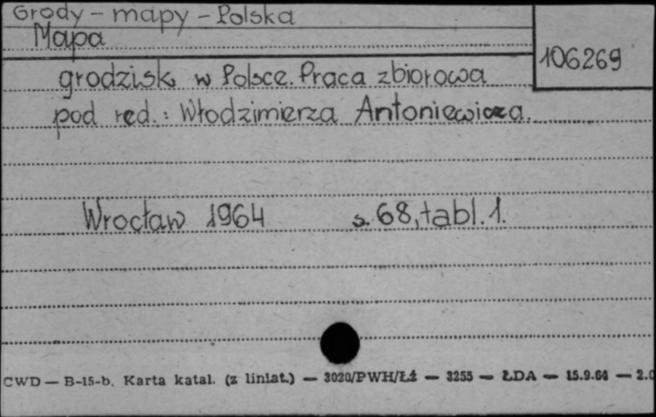 Grody – mapy – Polska
Mapa
106269
grodzisk w Polsce. Praca zbiorowa
pod red.: Włodzimierza Antoniewicza.
Wrocław 1964 s. 68, tabl. 1.
CWD — B-15-b. Karta katal. (z liniat.) — 3020/PWH/Łź — 3255 — ŁDA — 15.9.64 — 2.0